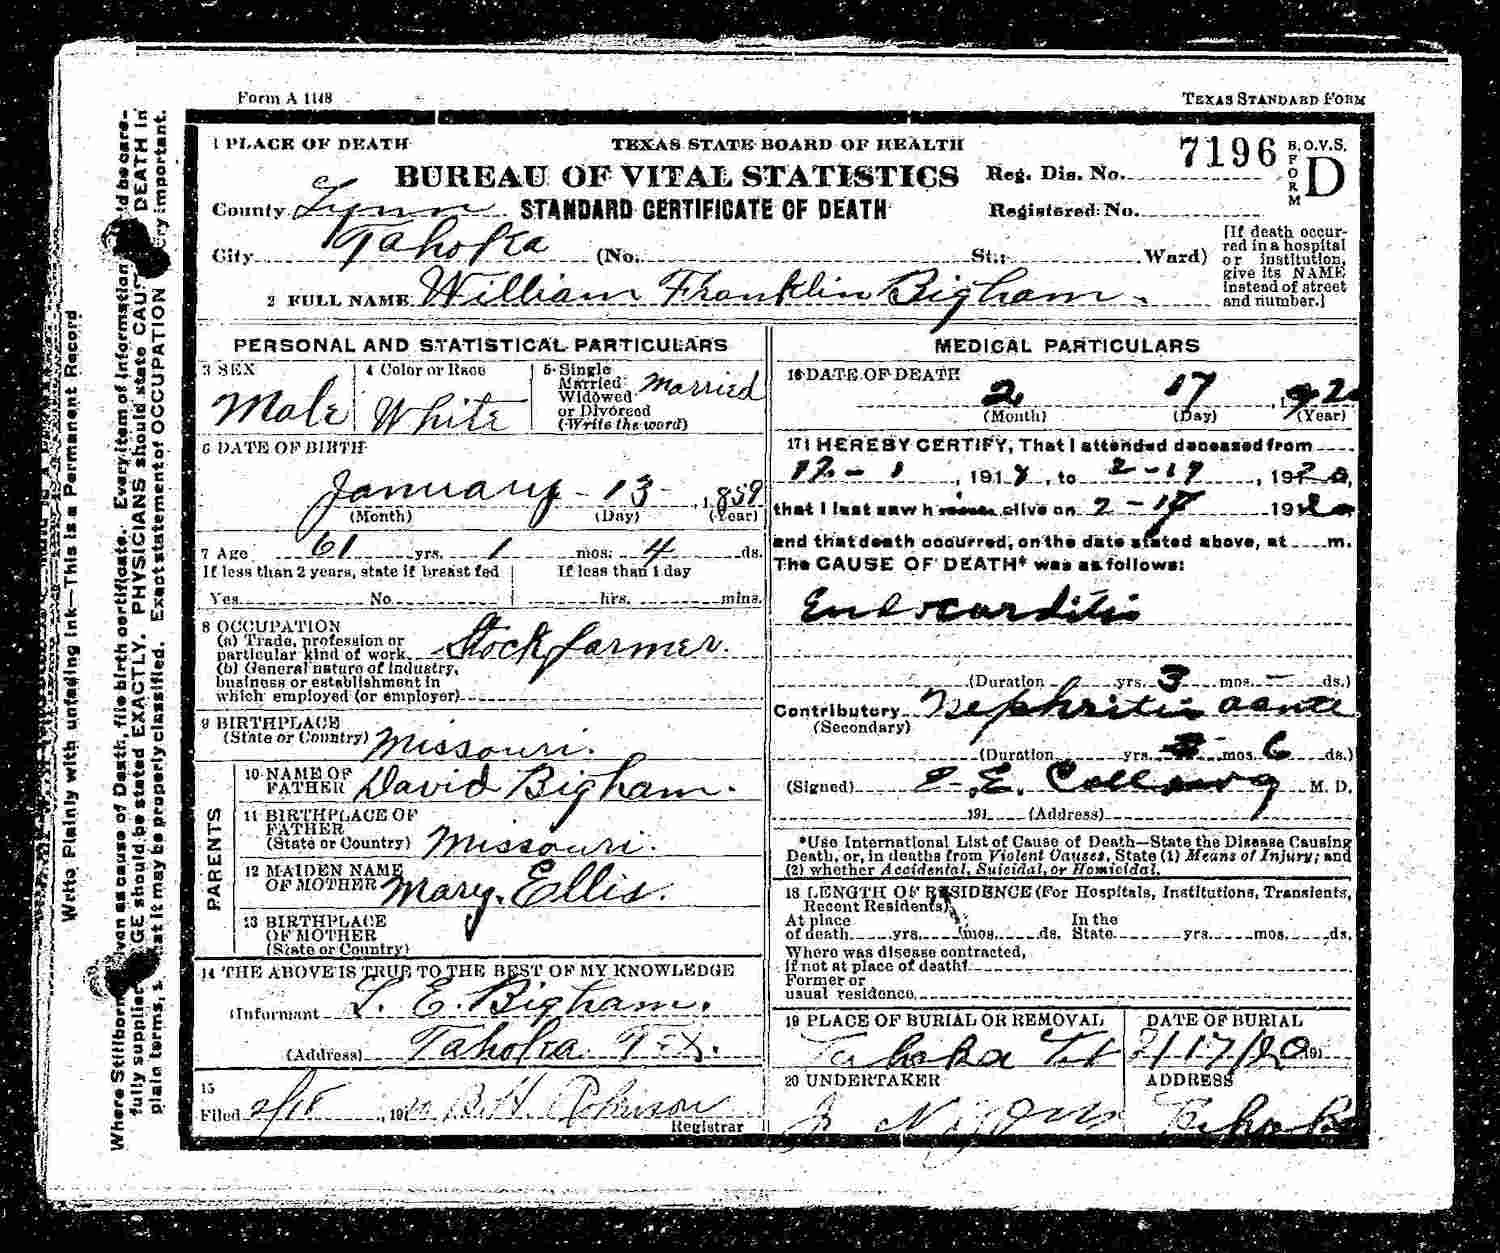 Form A 1118
TEXAS STANDARD FORM
1 PLACE OF DEATH
TEXAS STATE BOARD OF HEALTH
BUREAU OF VITAL STATISTICS
STANDARD CERTIFICATE OF DEATH
7196
B. O. V. S.
FORM D
Reg. Dis. No.
Registered No.
County Lynn
City Tahoka (No. St.; Ward)
[If death occur-
red in a hospital
or institution,
give its NAME
instead of street
and number.]
2 FULL NAME William Franklin Bigham.
PERSONAL AND STATISTICAL PARTICULARS
3 SEX
Male
4 Color or Race
White
5 Single
Married
Widowed
or Divorced
(Write the word)
Married
6 DATE OF BIRTH
January - 13 - , 1859
(Month) (Day) (Year)
7 Age 61 yrs. 1 mos. 4 ds.
If less than 2 years, state if breast fed
Yes No
If less than 1 day
hrs. mins.
8 OCCUPATION
(a) Trade, profession or
particular kind of work Stock farmer.
(b) General nature of industry,
business or establishment in
which employed (or employer)
9 BIRTHPLACE
(State or Country) Missouri.
PARENTS
10 NAME OF
FATHER David Bigham.
11 BIRTHPLACE OF
FATHER
(State or Country) Missouri.
12 MAIDEN NAME
OF MOTHER Mary Ellis.
13 BIRTHPLACE
OF MOTHER
(State or Country)
14 THE ABOVE IS TRUE TO THE BEST OF MY KNOWLEDGE
Informant L. E. Bigham.
(Address) Tahoka Tex.
15
Filed 2/18, 1920 B. H. Robinson
Registrar
MEDICAL PARTICULARS
16 DATE OF DEATH
2 17, 1920
(Month) (Day) (Year)
17 I HEREBY CERTIFY, That I attended deceased from
12 - 1, 191, to 2 - 17, 1920,
that I last saw h alive on 2 - 17 1920
and that death occurred, on the date stated above, at m.
The CAUSE OF DEATH* was as follows:
Endocarditis
(Duration yrs. 3 mos. - ds.)
Contributory Nephritis acute
(Secondary)
(Duration yrs. mos. 6 ds.)
(Signed) E. E. M. D.
191 (Address)
*Use International List of Cause of Death—State the Disease Causing
Death, or, in deaths from Violent Causes, State (1) Means of Injury; and
(2) whether Accidental, Suicidal, or Homicidal.
18 LENGTH OF RESIDENCE (For Hospitals, Institutions, Transients,
Recent Residents)
At place
of death yrs. mos. ds.
In the
State yrs. mos. ds.
Where was disease contracted,
if not at place of death?
Former or
usual residence
19 PLACE OF BURIAL OR REMOVAL
Tahoka Tex
DATE OF BURIAL
2/17/20 191
20 UNDERTAKER
ADDRESS
Tahoka
Write Plainly with unfading ink—This is a Permanent Record